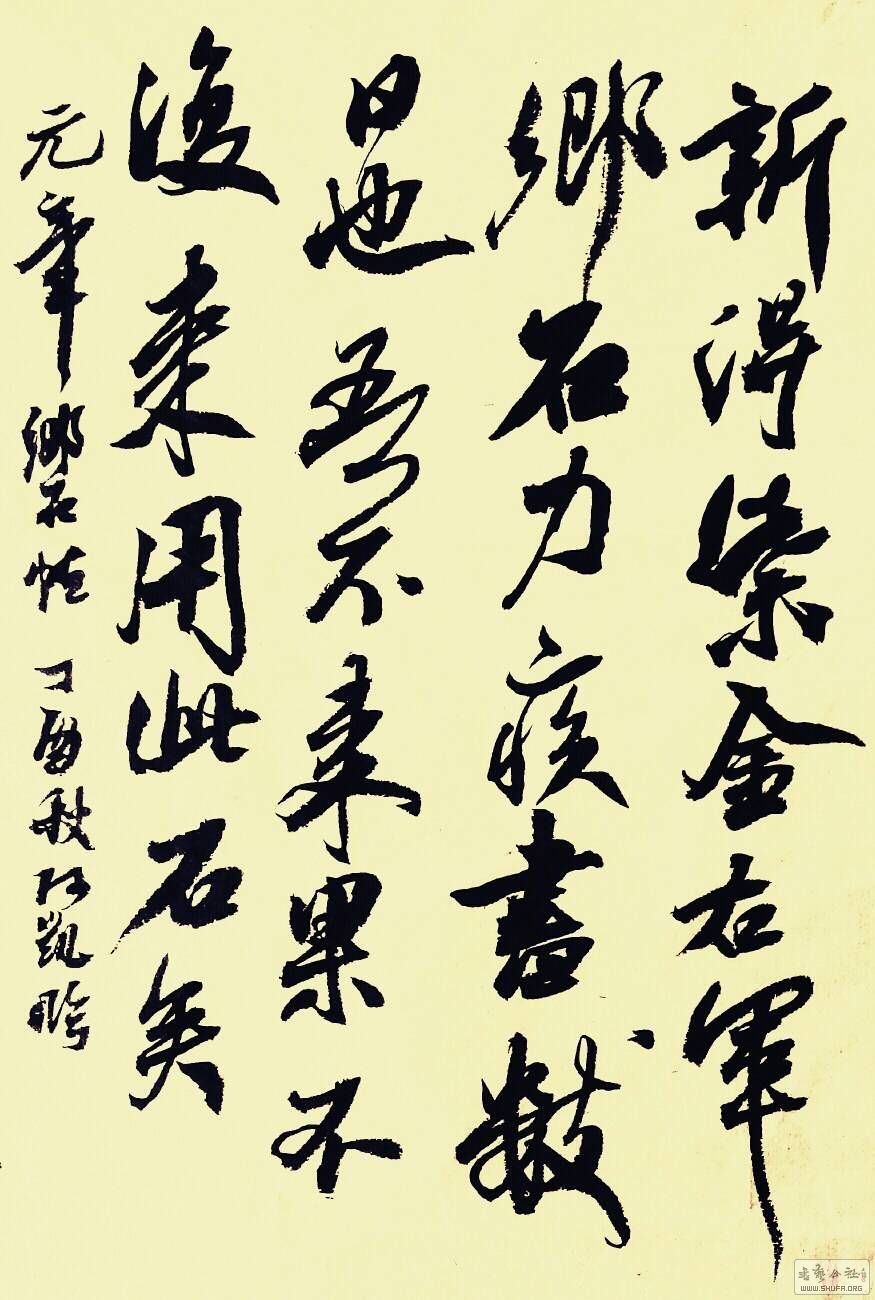 新得紫金右軍
鄉石力疾書數
日也吾不來果不
復來用此石矣
元章鄉石帖 丁酉秋凱
WWW.SHUFA.ORG